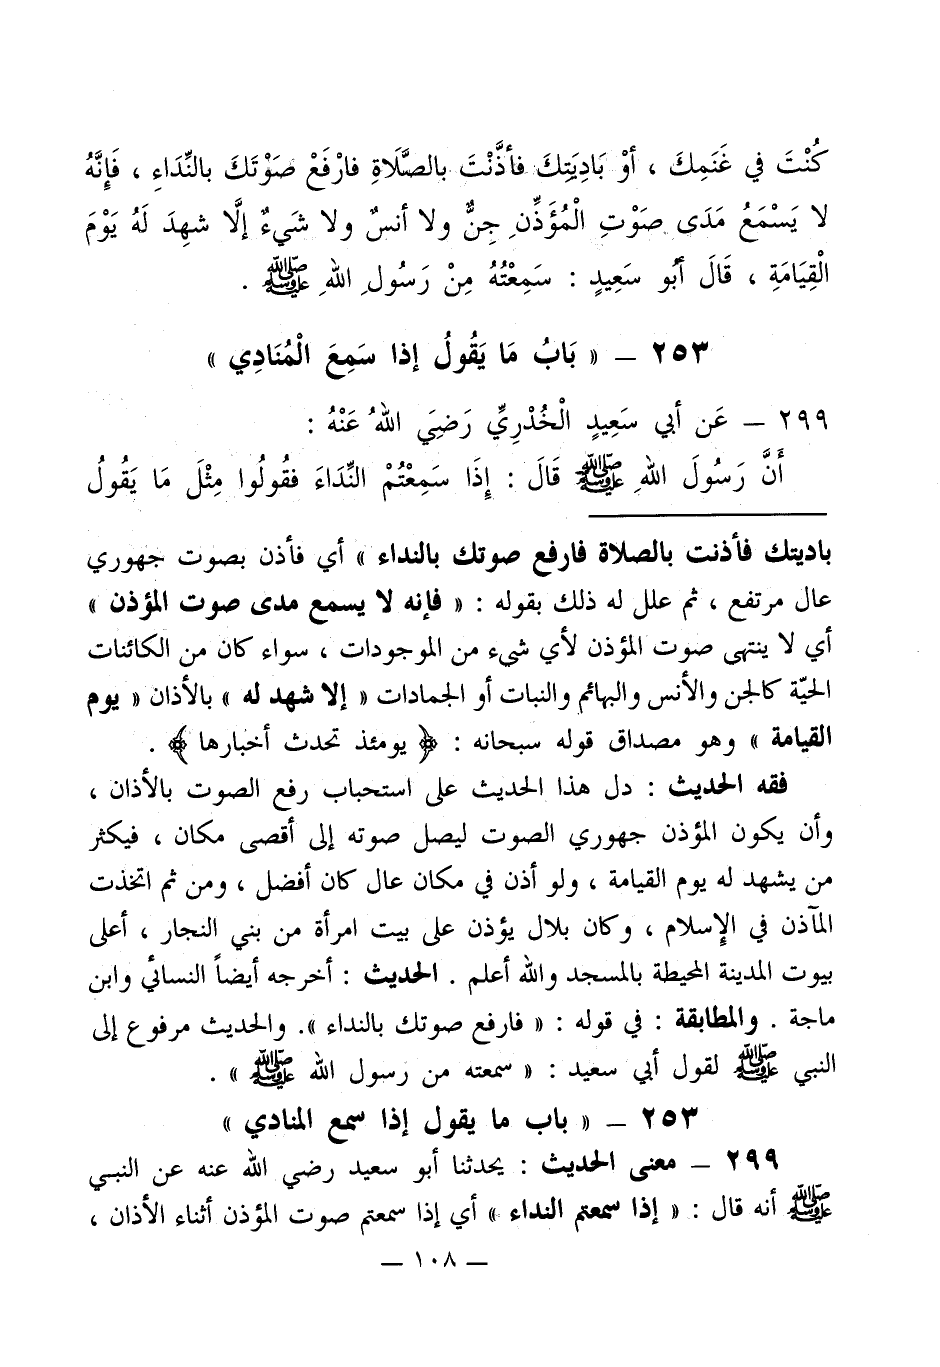 كُنْتَ في غَنَمِكَ ، أوْ بَادِيَتِكَ فأذَّنْتَ بالصَّلَاةِ فارْفَعْ صَوْتَكَ بالنِّدَاءِ ، فَإِنَّهُ
لا يَسْمَعُ مَدَى صَوْتِ الْمُؤَذِّنِ جِنٌّ ولا أنسٌ ولا شَيءٌ إلَّا شهِدَ لَهُ يَوْمَ
الْقِيَامَةِ ، قَالَ أبُو سَعِيدٍ : سَمِعْتُهُ مِنْ رَسُولِ اللهِ ﷺ .
٢٥٣ – « بَابُ مَا يَقُولُ إذا سَمِعَ الْمُنَادِي »
٢٩٩ – عَن أبي سَعِيدٍ الْخُدْرِيِّ رَضِيَ اللهُ عَنْهُ :
أَنَّ رَسُولَ اللهِ ﷺ قَالَ : إِذَا سَمِعْتُمْ النِّدَاءَ فقُولُوا مِثْلَ مَا يَقُولُ
باديتك فأذنت بالصلاة فارفع صوتك بالنداء » أي فأذن بصوت جهوري
عال مرتفع ، ثم علل له ذلك بقوله : « فإنه لا يسمع مدى صوت المؤذن »
أي لا ينتهي صوت المؤذن لأي شيء من الموجودات ، سواء كان من الكائنات
الحيّة كالجن والأنس والبهائم والنبات أو الجمادات « إلا شهد له » بالأذان « يوم
القيامة » وهو مصداق قوله سبحانه : ﴿ يومئذ تحدث أخبارها ﴾ .
فقه الحديث : دل هذا الحديث على استحباب رفع الصوت بالأذان ،
وأن يكون المؤذن جهوري الصوت ليصل صوته إلى أقصى مكان ، فيكثر
من يشهد له يوم القيامة ، ولو أذن في مكان عال كان أفضل ، ومن ثم اتخذت
المآذن في الإسلام ، وكان بلال يؤذن على بيت امرأة من بني النجار ، أعلى
بيوت المدينة المحيطة بالمسجد والله أعلم . الحديث : أخرجه أيضاً النسائي وابن
ماجة . والمطابقة : في قوله : « فارفع صوتك بالنداء ». والحديث مرفوع إلى
النبي ﷺ لقول أبي سعيد : « سمعته من رسول الله ﷺ » .
٢٥٣ – « باب ما يقول إذا سمع المنادي »
٢٩٩ – معنى الحديث : يحدثنا أبو سعيد رضي الله عنه عن النبي
ﷺ أنه قال : « إذا سمعتم النداء » أي إذا سمعتم صوت المؤذن أثناء الأذان ،
– ١٠٨ –